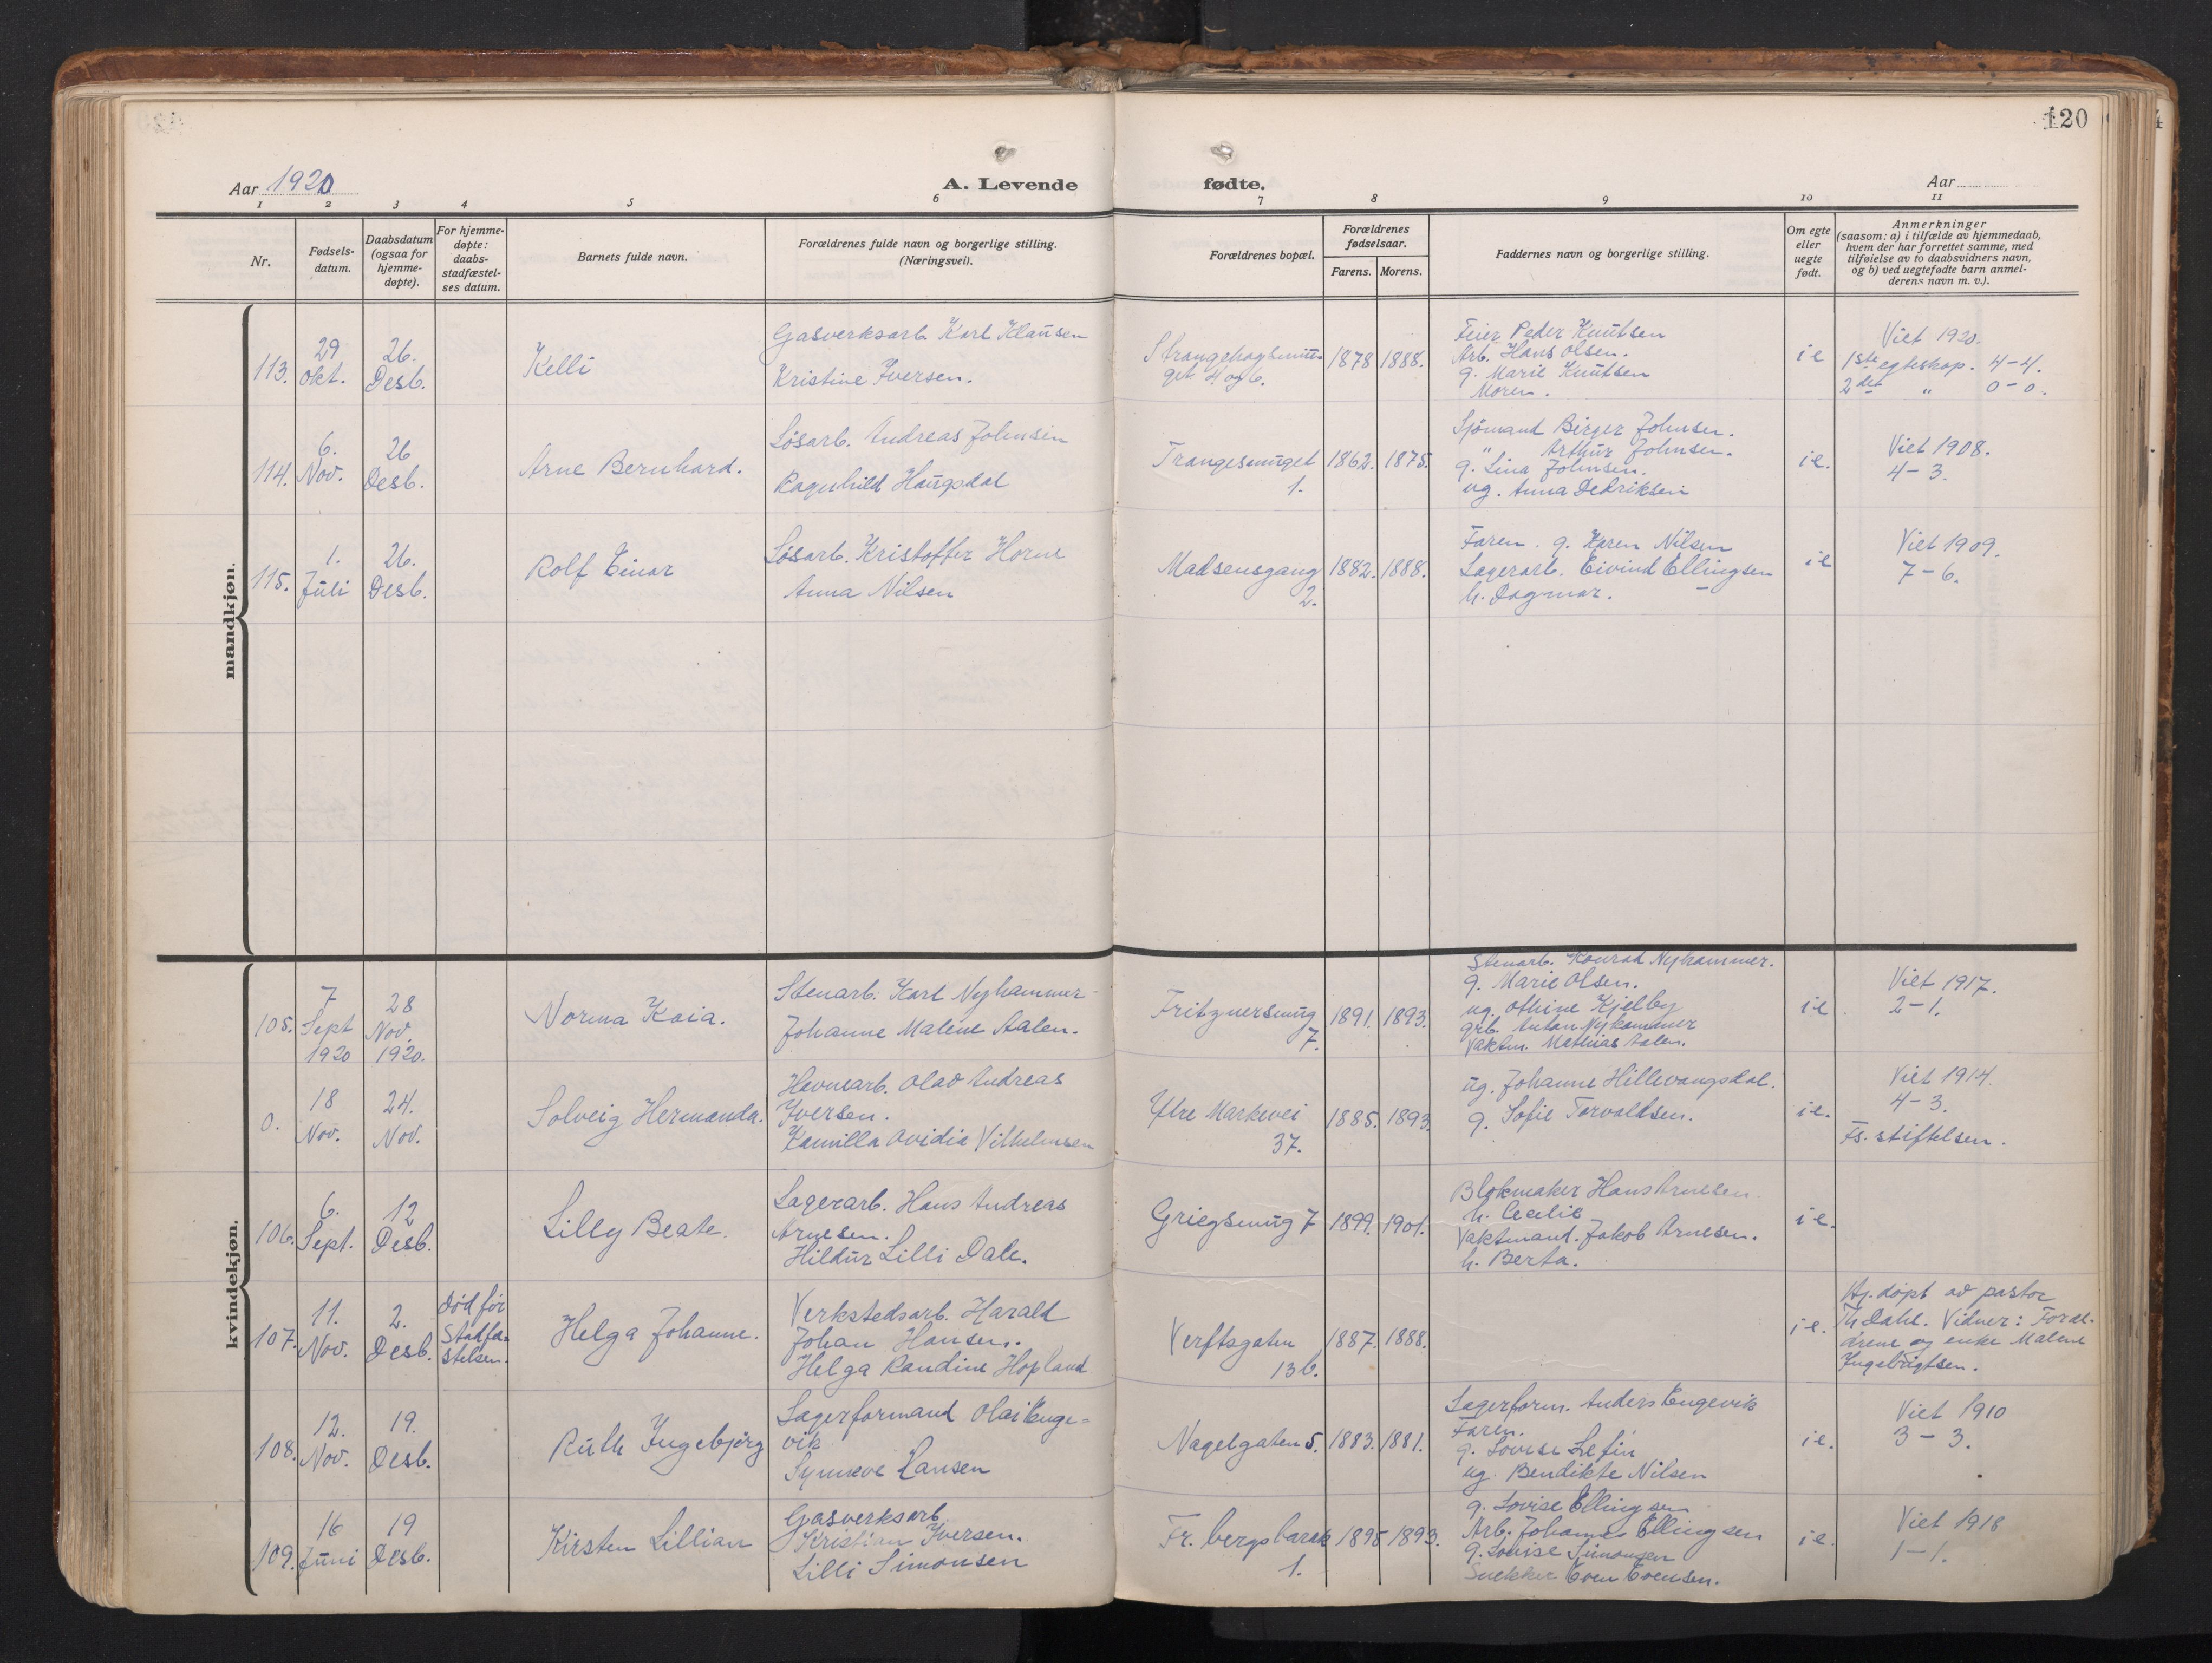 120
Aar 1920
A. Levende
fødte.
Aar
1 2 3 4 5 6 7 8 9 10 11
Nr.
Fødsels-
datum.
Daabsdatum
(ogsaa for
hjemme-
døpte).
For hjemme-
døpte:
daabs-
stadfæstel-
ses datum.
Barnets fulde navn.
Forældrenes fulde navn og borgerlige stilling.
(Næringsvei).
Forældrenes bopæl.
Forældrenes
fødselsaar.
Farens. Morens.
Faddernes navn og borgerlige stilling.
Om egte
eller
uegte
født.
Anmerkninger
(saasom: a) i tilfælde av hjemmedaab,
hvem der har forrettet samme, med
tilføielse av to daabsvidners navn,
og b) ved uegtefødte barn anmel-
derens navn m. v.).
mandkjøn.
113.
29
Okt.
26.
Desb.
Kelli
Gasverksarb. Karl Klausen
Kristine Iversen.
get 4 og 6.
1878 1888.
Feier Peder Knutsen
Arb. Hans Olsen.
g. Marie Knutsen
Moren.
i e
Viet 1920.
1ste egteskap. 4-4.
2det " 0-0.
114.
6.
Nov.
26
Desb.
Arne Bernhard.
Løsarb. Andreas Johnsen
Ragnhild Haugsdal
Trangesmuget
1.
1862. 1875.
Sjömand Birger Johnsen.
" Arthur Johnsen.
g. Lina Johnsen.
ug. Anna Dedriksen
i e.
Viet 1908.
4-3.
115.
1.
Juli
26.
Desb.
Rolf Einar
Løsarb. Kristoffer Horne
Anna Nilsen
Madsensgang
2.
1882. 1888.
Faren. g. Karen Nilsen
Lagerarb. Eivind Ellingsen
h. Dagmar.
i e
Viet 1909.
7-6.
kvindekjøn.
105.
7
Sept
1920
28
Nov.
1920.
Norma Kaia.
Stenarb. Karl Nyhammer
Johanne Malene Aalen.
Fritznersmug
7.
1891. 1893.
Stenarb. Konrad Nyhammer.
g. Marie Olsen.
ug. Othine Kjelby
grb. Anton Nyhammer
Vaktm. Mathias Aalen.
i e
Viet 1917.
2-1.
0.
18
Nov.
24.
Nov.
Solveig Hermanda.
Havnearb. Olav Andreas
Iversen.
Kamilla Ovidia Vilhelmsen
Ytre Markevei
37.
1885. 1893.
ug. Johanne Hillevangsdal.
g. Sofie Torvaldsen.
i e.
Viet 1914.
4-3.
Fs. stiftelsen.
106.
6.
Sept.
12
Desb.
Lilly Beate.
Lagerarb. Hans Andreas
Arnesen.
Hildur Lilli Dale.
Griegsmug 7
1899. 1901.
Blokmaker Hans Arnesen.
h. Cecilie
Vaktmand. Jakob Arnesen.
h. Berta.
i e.
107.
11.
Nov.
2.
Desb.
død før
Stadfæ-
stelsen.
Helga Johanne.
Verkstedsarb. Harald
Johan Hansen.
Helga Randine Hopland
Verftsgaten
13b.
1887. 1888.
i e.
Hj. døpt av pastor
Th. Dahl. Vidner: Foræl-
drene og enke Malene
Ingebrigtsen.
108.
12.
Nov.
19.
Desb.
Ruth Ingebjørg
Lagerformand Olai Enge-
vik
Synneve Hansen
Nagelgaten 5.
1883. 1881.
Lagerform. Anders Engevik
Faren.
g. Lovise
ug. Bendikte Nilsen
i e.
Viet 1910
3-3.
109.
16
Juni
19
Desb.
Kirsten Lillian
Gasverksarb.
Kristian Iversen.
Lilli Simonsen
Fr. bergsbarak
1.
1895 1893.
g. Lovise Ellingsen
Arb. Johannes Ellingsen
g. Lovise Simonsen
Snekker Even Evensen.
i e.
Viet 1918
1-1.